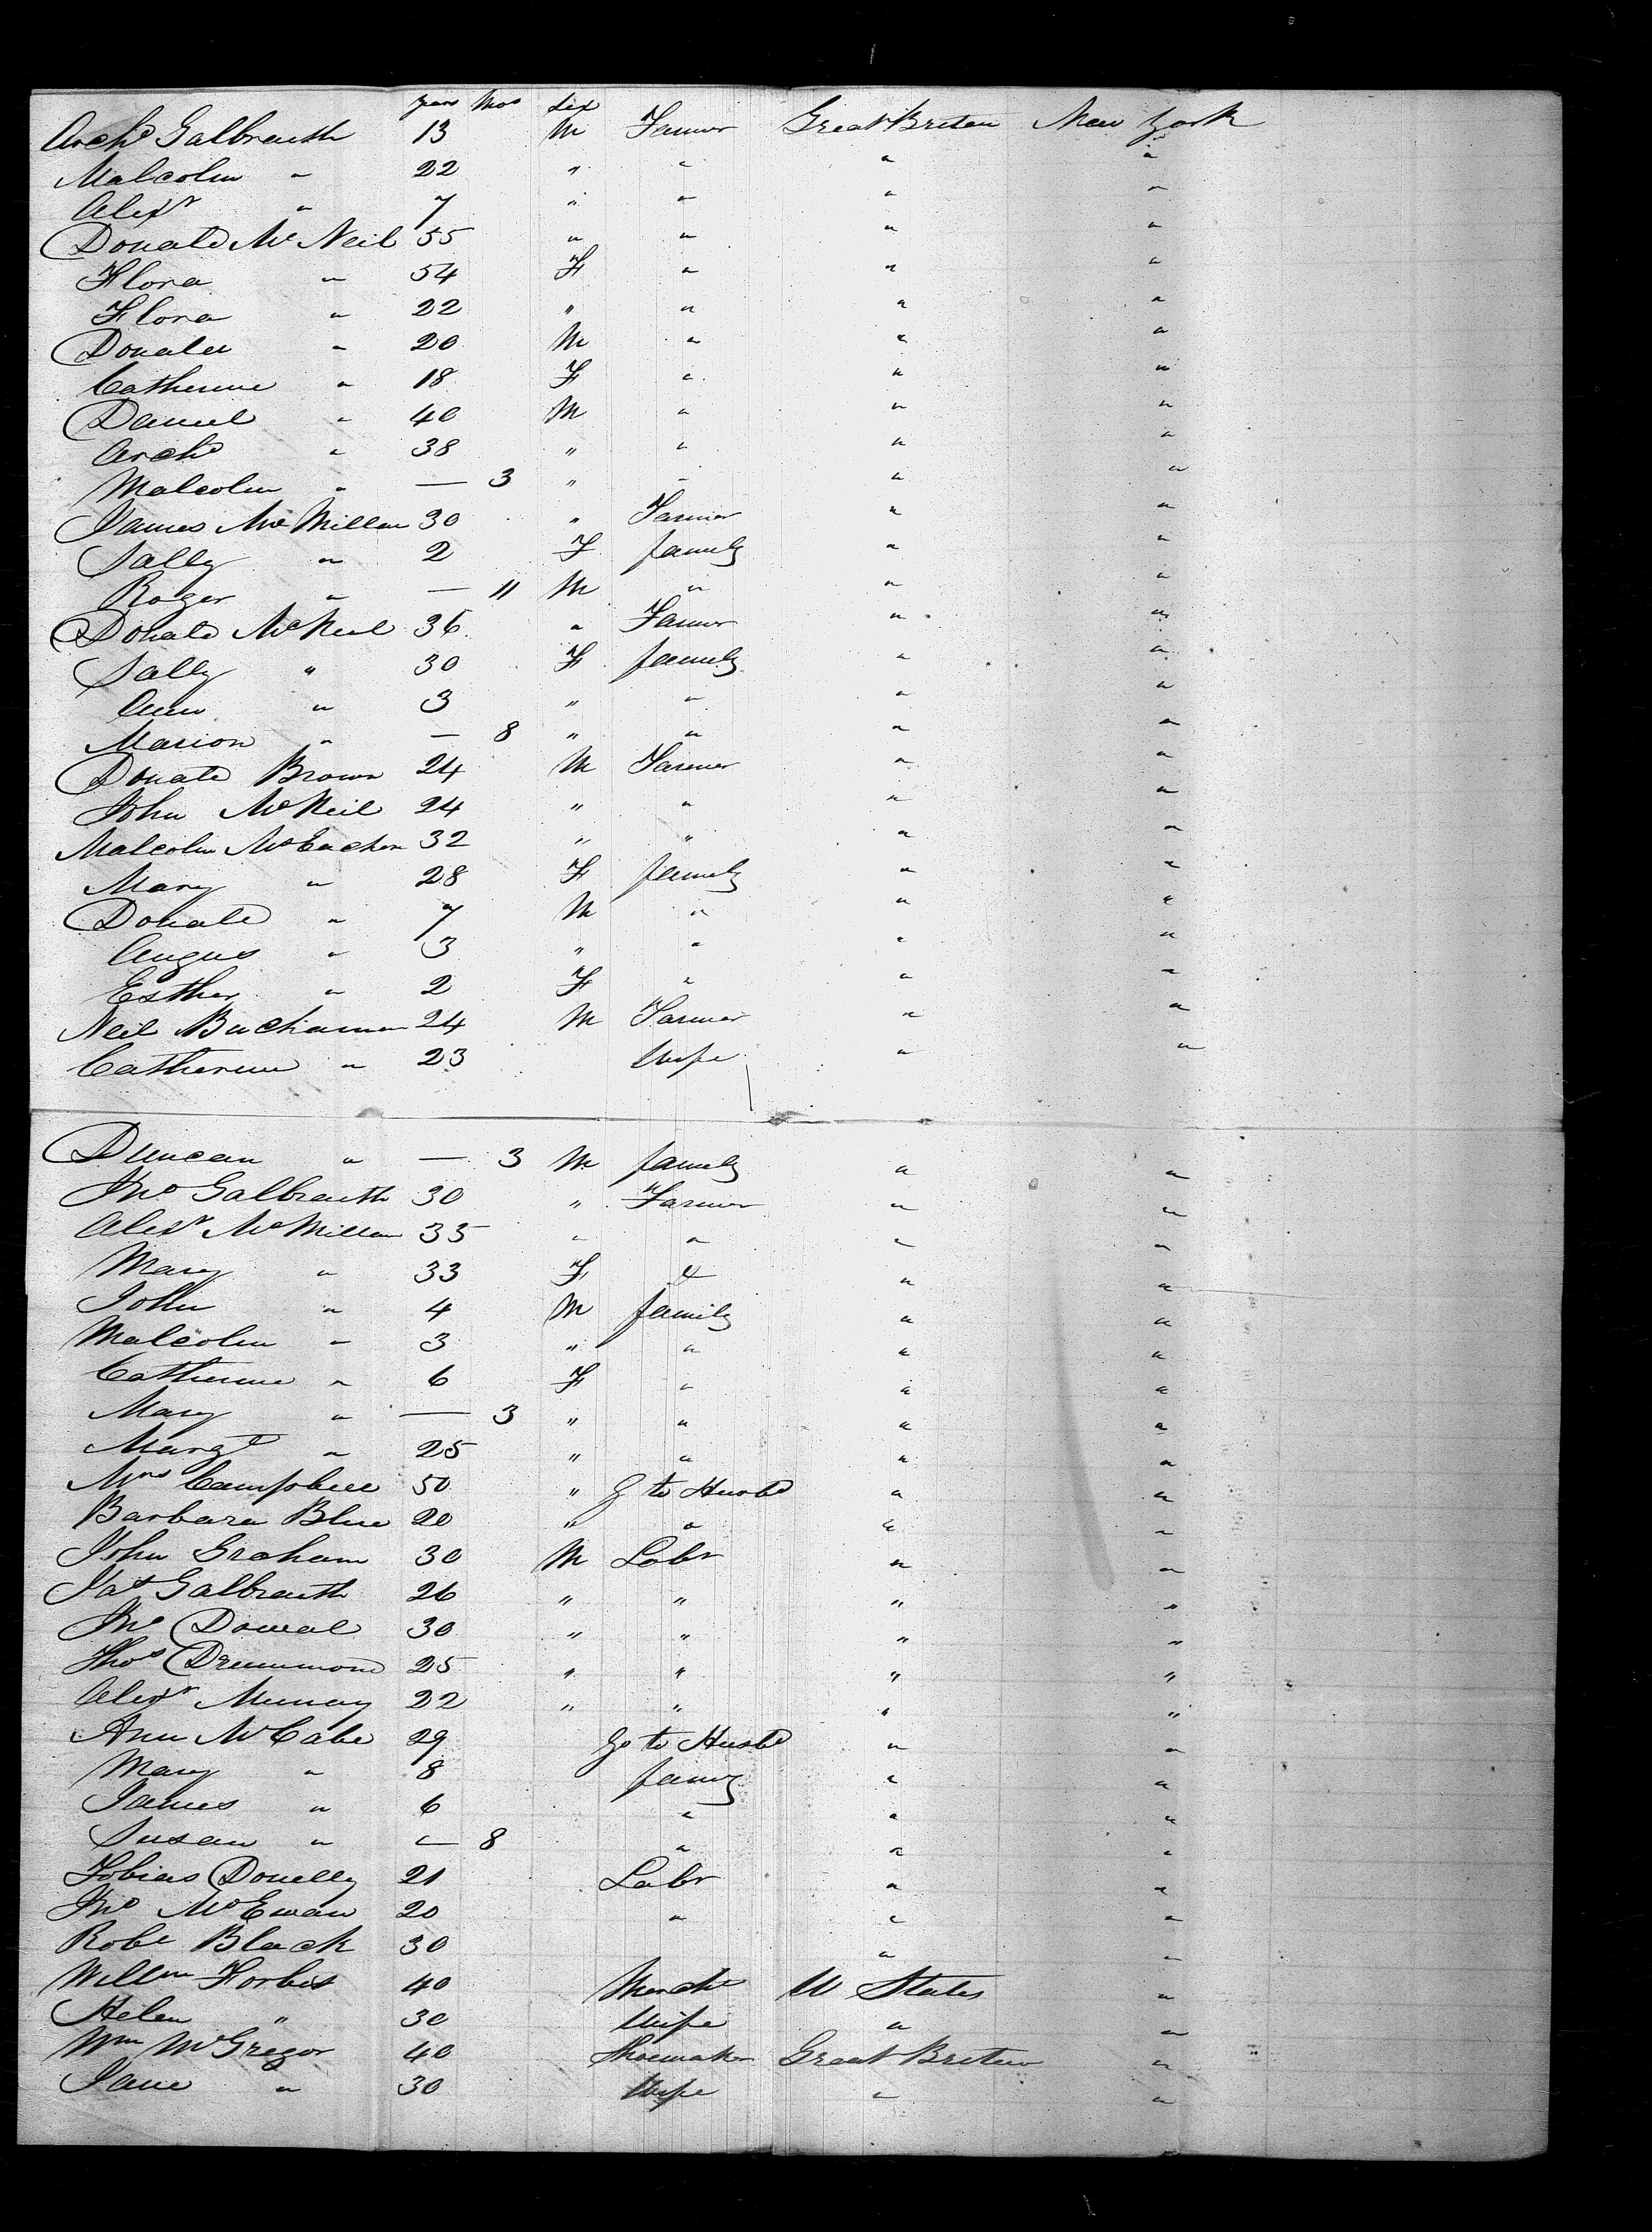 years Mos Sex
Archd Galbreath 13 M Farmer Great Briten New York
Malcolm " 22 " " " "
Alexr " 7 " " " "
Donald Mc Neil 55 " " " "
Flora " 54 F " " "
Flora " 22 " " " "
Donald " 20 M " " "
Catherine " 18 F " " "
Daniel " 40 M " " "
Archd " 38 " " " "
Malcolm " — 3 " " " "
James Mc Millan 30 " Farmer " "
Sally " 2 F family " "
Roger " — 11 M " " "
Donald McNeil 36 " Farmer " "
Sally " 30 F family " "
Ann " 3 " " " "
Marion " — 8 " " " "
Donald Brown 24 M Farmer " "
John McNeil 24 " " " "
Malcolm McEachen 32 " " " "
Mary " 28 F family " "
Donald " 7 M " " "
Angus " 3 " " " "
Esther " 2 F " " "
Neil Buchanan 24 M Farmer " "
Catherine " 23 Wife " "
Duncan " — 3 M family " "
Jno Galbreath 30 " Farmer " "
Alexr McMillan 35 " " " "
Mary " 33 F " " "
John " 4 M family " "
Malcolm " 3 " " " "
Catherine " 6 F " " "
Mary " — 3 " " " "
Margt " 25 " " " "
Mrs Campbell 50 " g to Husbd " "
Barbara Blue 20 " " " "
John Graham 30 M Labr " "
Jas Galbreath 26 " " " "
Jno Dowal 30 " " " "
Thos Drummond 25 " " " "
Alexr Murray 22 " " " "
Ann McCabe 29 go to Husbd " "
Mary " 8 family " "
James " 6 " " "
Susan " — 8 " " "
Tobias Donelly 21 Labr " "
Jno McEwan 20 " " "
Robt Black 30 " "
Willm Forbes 40 Mercht U States "
Helen " 30 Wife " "
Wm McGregor 40 Shoemaker Great Briten "
Jane " 30 Wife " "